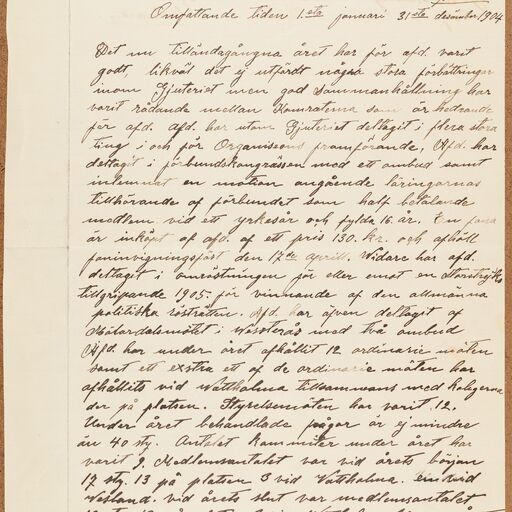 Omfattande tiden 1.sta januari 31sta december 1904
Det nu tilländagångna året har för afd. varit
godt, likväl det ej utfördt några stora förbättringar
inom Gjuteriet men god sammanhållning har
varit rådande mellan Kamraterna som är hedrande
för afd. Afd. har utom Gjuteriet deltagit i flera stora
ting i och för Organisens framförande, Afd. har
deltagit i förbundskongrässen med ett ombud samt
inlemnat en motion angående läringarnas
tillhörande af förbundet som half betalande
medlem vid ett yrkesår och fylda 16 år. En fana
är inköpt af afd. af ett pris 130. kr. och afhöll
faninvigningsfäst den 17de aprill. Widare har afd.
deltagit i omröstningen för eller emot en Storstrejks
tillgripande 1905. för vinnande af den allmänna
politiska rösträtten. Afd. har äfven deltagit af
Mälardalsmötet i Wessterås med två ombud
Afd. har under året afhållit 12 ordinarie möten
samt ett exstra ett af de ordinarie möten har
afhållits vid Wattholma tillsammans med kolegerna
der på platsen. Styrelsemöten har varit 12.
Under året behandlade frågor är ej mindre
än 40 sty. Antalet kommiter under året har
varit 9. Medlemsantalet var vid årets början
17 sty. 13 på platsen 3 vid Wattholma. en vid
Wesland. vid årets slut var medlemsantalet